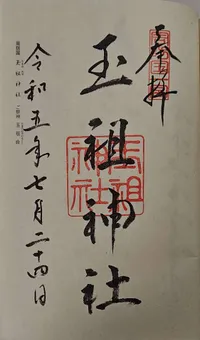 奉拝
玉祖神社
玉祖神社
令和五年七月二十四日
玉祖神社